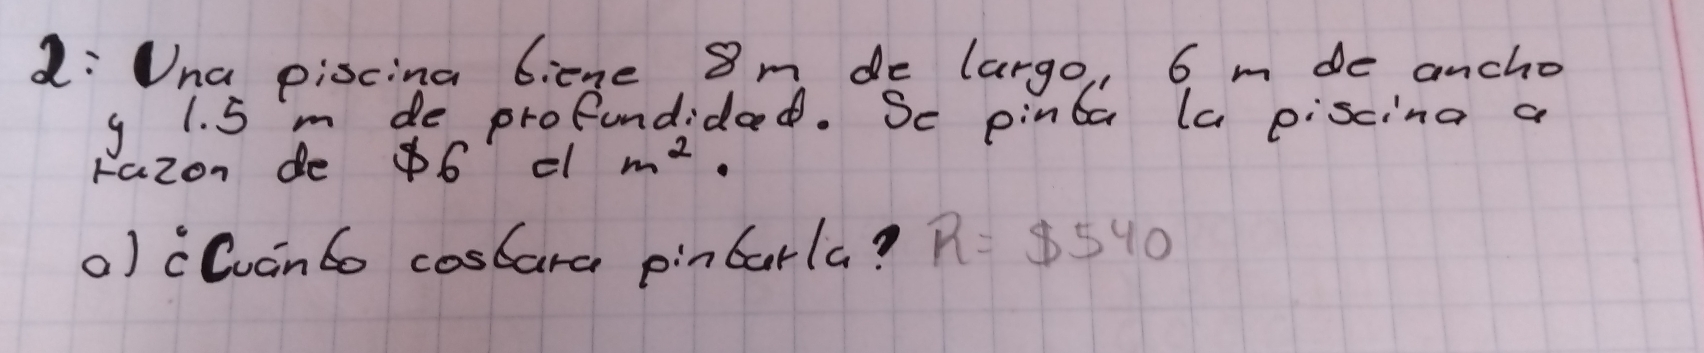 2: Una piscina tiene 8m de largo, 6 m de ancho
y 1.5 m de profundidad. Se pinta la piscina a
razon de $6 el m².
a) ¿Cuánto costara pintarla? R= $540